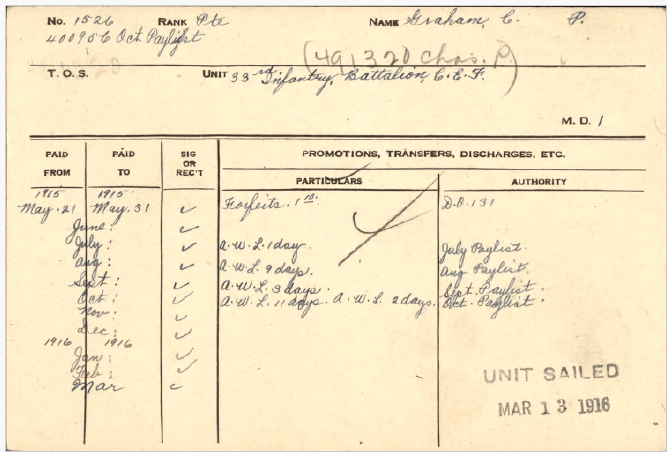 No. 1526 RANK Pte NAME Graham, C. P.
400956 Oct. Paylist
(491320 Chas. P.)
T. O. S. UNIT 33rd Infantry, Battalion, C.E.F.
M. D. 1
PAID FROM PAID TO SIG OR REC'T PROMOTIONS, TRANSFERS, DISCHARGES, ETC.
PARTICULARS AUTHORITY
1915 1915
May. 21 May. 31 ✓ Forfeits. 1 D.O. 131
June: ✓
July: ✓ A.W.L. 1 day. July Paylist.
Aug: ✓ A.W.L. 9 days. Aug Paylist.
Sept: ✓ A.W.L. 3 days. Sept. Paylist.
Oct: ✓ A.W.L. 11 days. A.W.L. 2 days. Oct. Paylist.
Nov: ✓
Dec: ✓
1916 1916
Jan: ✓
Feb: ✓
Mar
UNIT SAILED
MAR 13 1916